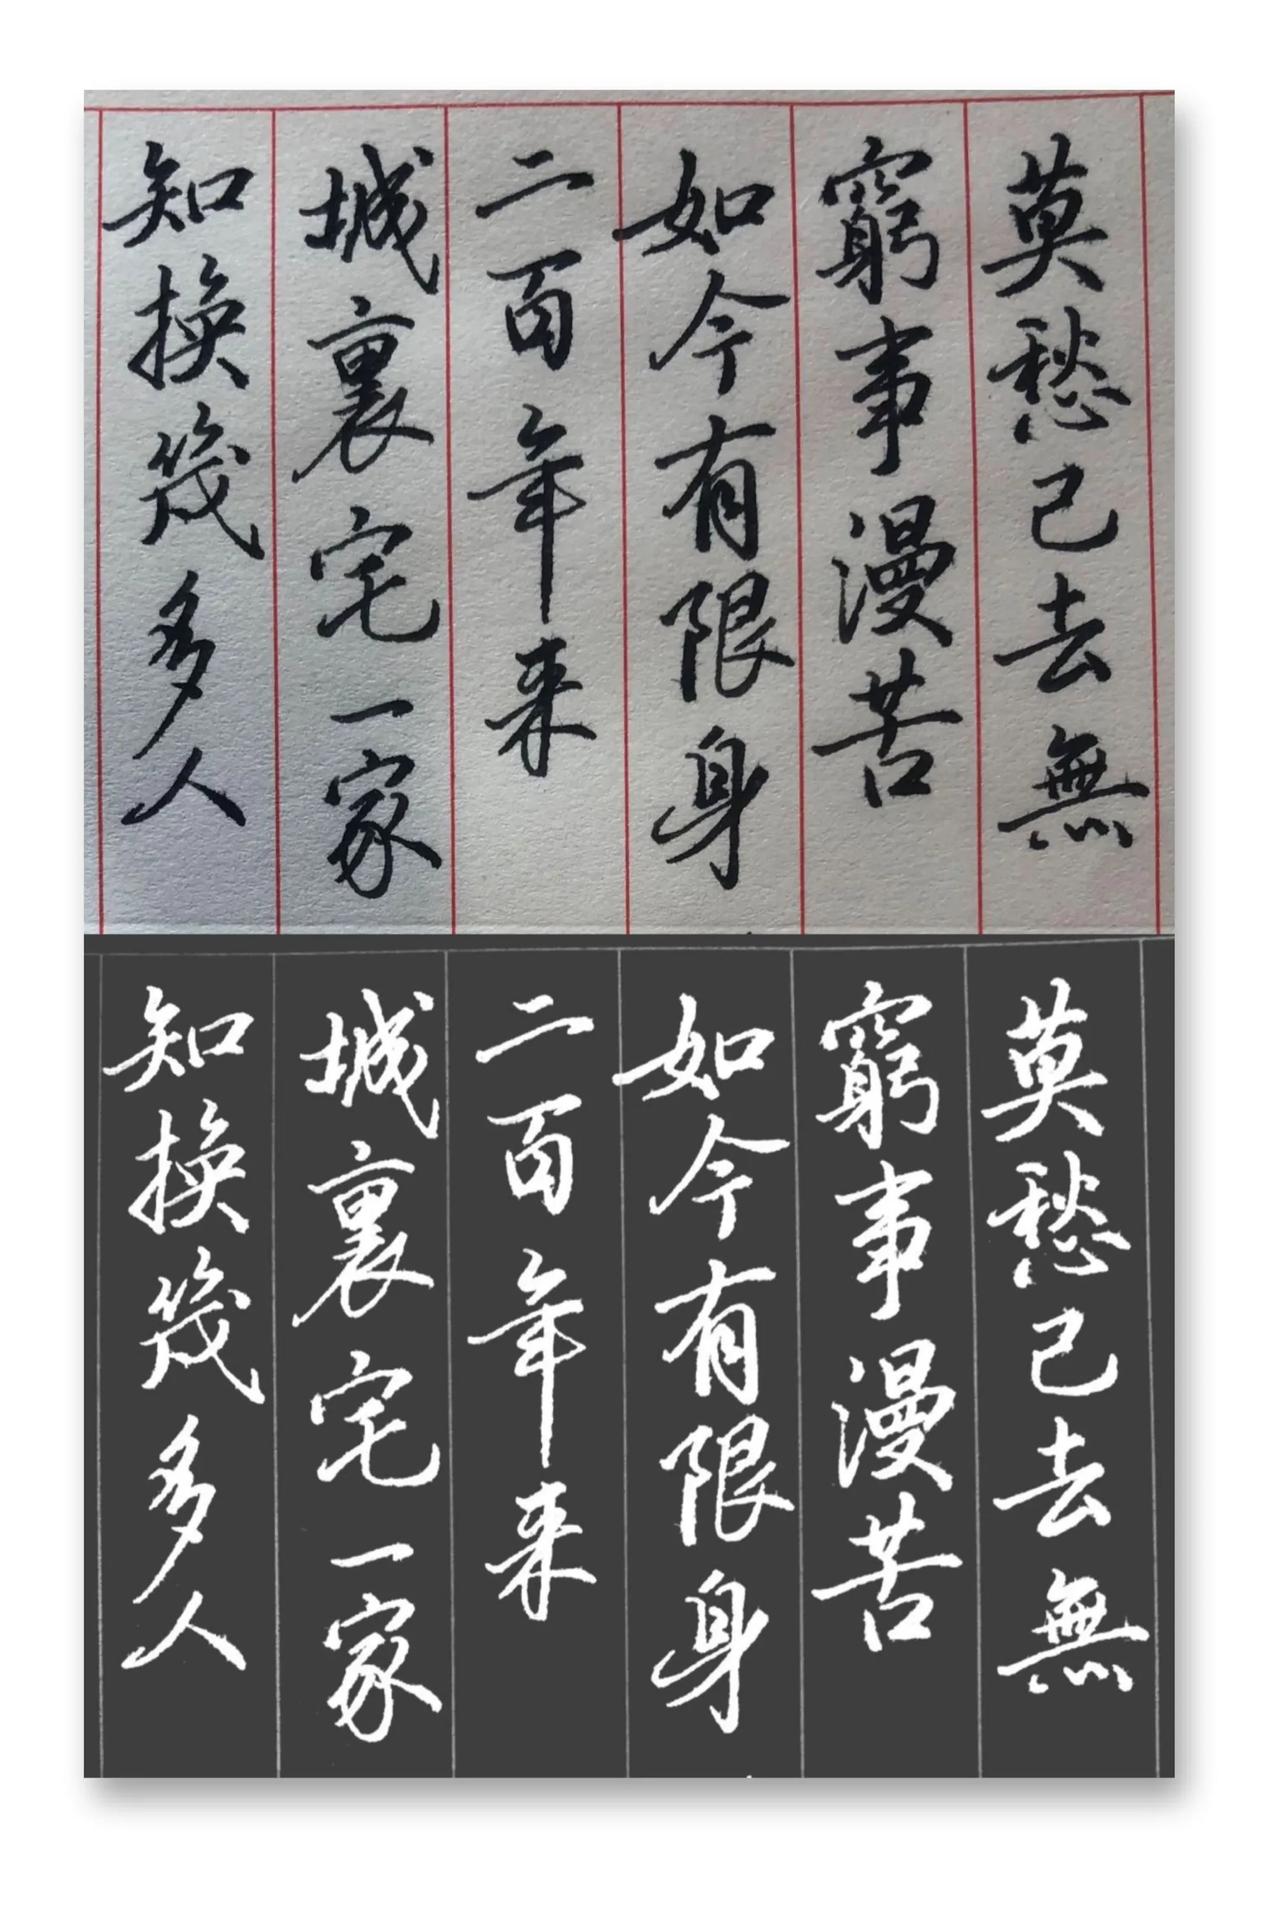 莫愁已去無
窮事漫苦
如今有限身
二百年来
城裏宅一家
知換幾多人
莫愁已去無
窮事漫苦
如今有限身
二百年来
城裏宅一家
知換幾多人